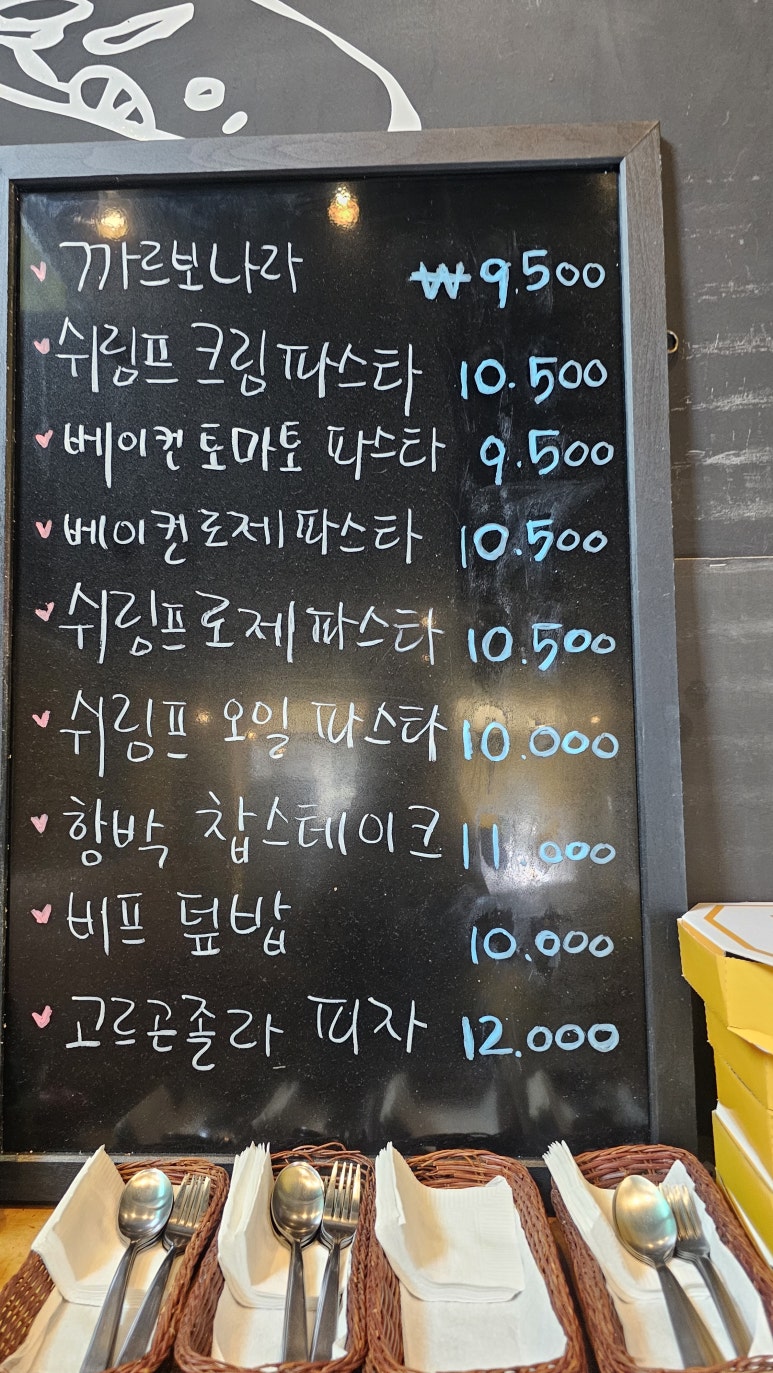 까르보나라 ₩9.500
쉬림프 크림 파스타 10.500
베이컨 토마토 파스타 9.500
베이컨 로제 파스타 10.500
쉬림프 로제 파스타 10.500
쉬림프 오일 파스타 10.000
함박 찹스테이크 11.000
비프 덮밥 10.000
고르곤졸라 피자 12.000